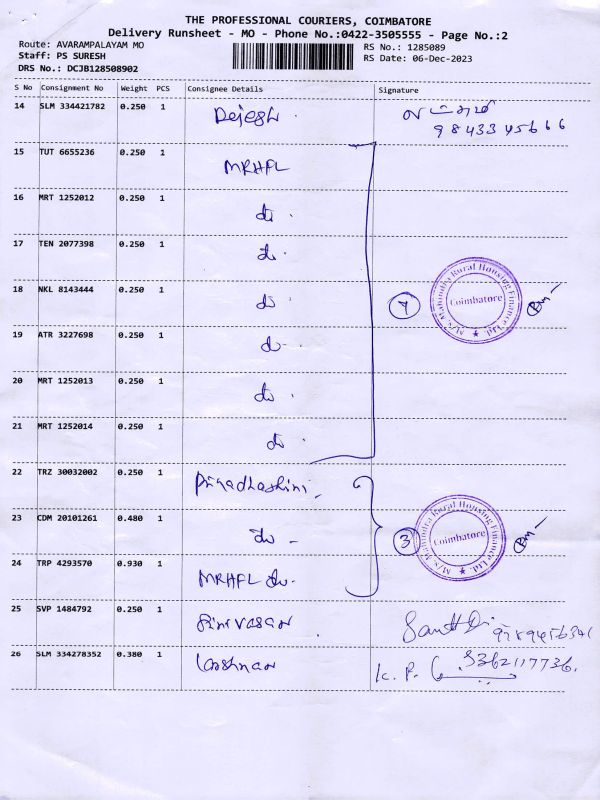 THE PROFESSIONAL COURIERS, COIMBATORE
Delivery Runsheet - MO - Phone No.:0422-3505555 - Page No.:2
Route: AVARAMPALAYAM MO
RS No.: 1285089
Staff: PS SURESH
RS Date: 06-Dec-2023
DRS No.: DCJB128508902
S No Consignment No Weight PCS Consignee Details Signature
14 SLM 334421782 0.250 1
15 TUT 6655236 0.250 1 MRHFL
16 MRT 1252012 0.250 1 do
17 TEN 2077398 0.250 1 do
18 NKL 8143444 0.250 1 do
7
M/s. Mahindra Rural Housing Finance Ltd.
Coimbatore
19 ATR 3227698 0.250 1 do
20 MRT 1252013 0.250 1 do
21 MRT 1252014 0.250 1 do
22 TRZ 30032002 0.250 1 Priyadhashini
23 CDM 20101261 0.480 1 do
3
M/s. Mahindra Rural Housing Finance Ltd.
Coimbatore
24 TRP 4293570 0.930 1 MRHFL do
25 SVP 1484792 0.250 1 Sinivasan
26 SLM 334278352 0.380 1 K. P.